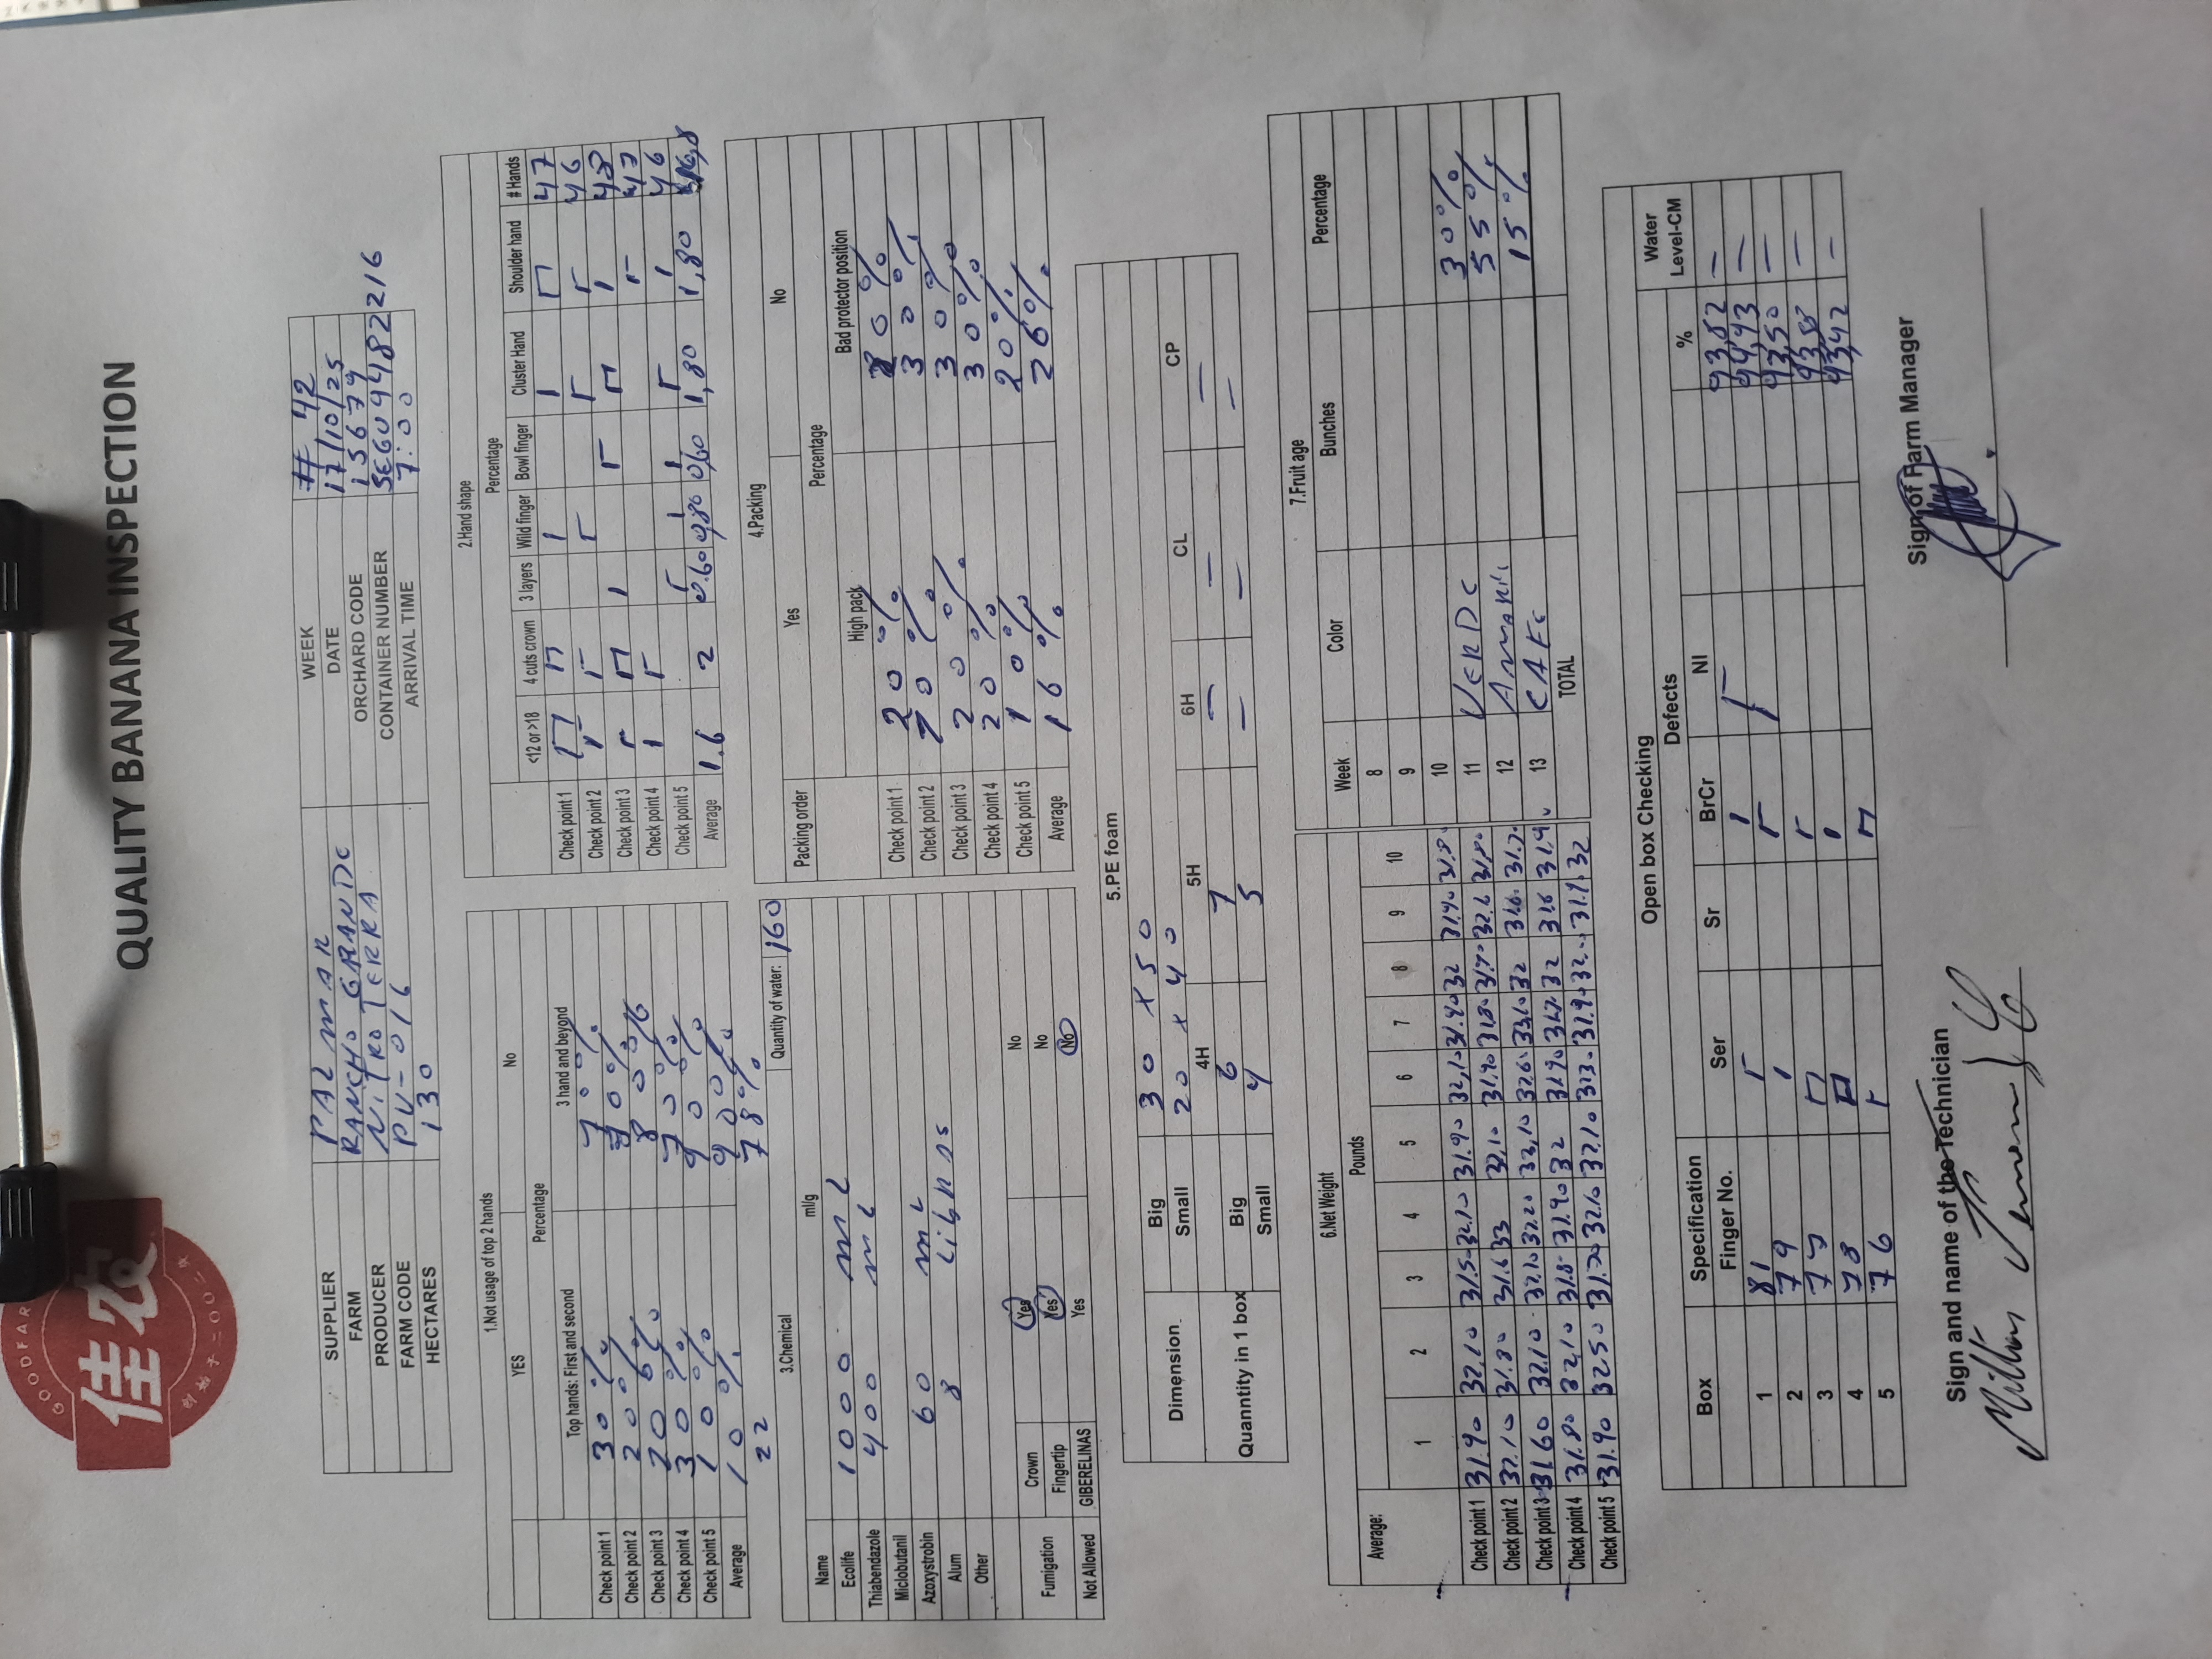 GOODFAR
佳农
创始于二〇〇二年
QUALITY BANANA INSPECTION
SUPPLIER PALMAR WEEK # 42
FARM RANCHO GRANDE DATE 17/10/25
PRODUCER NITROTERRA ORCHARD CODE 15679
FARM CODE PV-016 CONTAINER NUMBER SEGU9482216
HECTARES 130 ARRIVAL TIME 7:00
1.Not usage of top 2 hands
YES No
Percentage
Top hands: First and second 3 hand and beyond
Check point 1 30% 70%
Check point 2 20% 80%
Check point 3 20% 70%
Check point 4 30% 90%
Check point 5 10% 90%
Average 10%
22 78%
2.Hand shape
Percentage
<12 or >18 4 cuts crown 3 layers Wild finger Bowl finger Cluster Hand Shoulder hand # Hands
Check point 1 47
Check point 2 46
Check point 3 48
Check point 4 47
Check point 5 46
Average 1.6 2 0.60 0,80 0,60 1,80 1,80
3.Chemical Quantity of water: 160
Name ml/g
Ecolife 1000 mL
Thiabendazole 400 mL
Miclobutanil
Azoxystrobin 60 mL
Alum 8 LibRAS
Other
Fumigation Crown Yes No
Fingertip Yes No
Not Allowed GIBERELINAS Yes No
4.Packing
Packing order Yes No
Percentage
High pack Bad protector position
Check point 1 20% 20%
Check point 2 10% 30%
Check point 3 20% 30%
Check point 4 20% 30%
Check point 5 10% 20%
Average 16% 26%
5.PE foam
Dimension Big 30 x 50
Small 20 x 40
4H 5H 6H CL CP
Quanntity in 1 box Big 6 7 — — —
Small 4 5 — — —
6.Net Weight
Average: Pounds
1 2 3 4 5 6 7 8 9 10
Check point 1 31.90 32.10 31.50 32.10 31.90 32,10 31.90 32 31.90 31.80
Check point 2 32.10 31.80 31.6 33 32,10 31.90 31.80 31.70 32.6 31.80
Check point 3 31.60 32.10 32.10 32.20 32,10 32.60 33.10 32 31.60 31.70
Check point 4 31.80 32,10 31.80 31.90 32 31.90 31.7 32 31.6 31.9
Check point 5 31.90 32.50 31.70 32.10 32.10 31.9 31.9 32
7.Fruit age
Week Color Bunches Percentage
8
9
10
11 VERDE 30%
12 AMARIL 55%
13 CAFE 15%
TOTAL
Open box Checking
Box Specification Defects Water Level-CM
Finger No. Ser Sr BrCr NI %
1 81 93,82 —
2 79 94,93 —
3 77 93,50 —
4 78 —
5 76 93,42 —
Sign and name of the Technician
Sign of Farm Manager
Milton